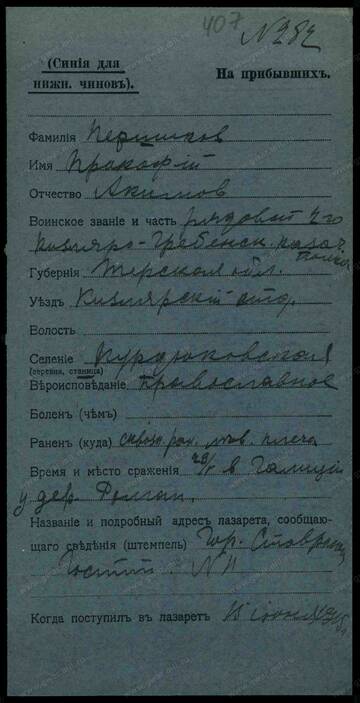 407
№ 282
(Синія для
нижн. чиновъ).
На прибывшихъ.
Фамилія Першиков
Имя Прокофій
Отчество Акимов
Воинское званіе и часть рядовой 2го
Кизляро-Гребенск. казач.
полка
Губернія Терской обл.
Уѣздъ Кизлярскій отд.
Волость
Селеніе Курдюковская
(деревня, станица)
Вѣроисповѣданіе православное
Боленъ (чѣмъ)
Раненъ (куда) сквозн. ран. лѣв. плеча
Время и мѣсто сраженія в Галиціи
у дер.
Названіе и подробный адресъ лазарета, сообщаю-
щаго свѣдѣнія (штемпель) Гор. Ставроп.
Госпит. № 11
Когда поступилъ въ лазаретъ 15 іюня 1915